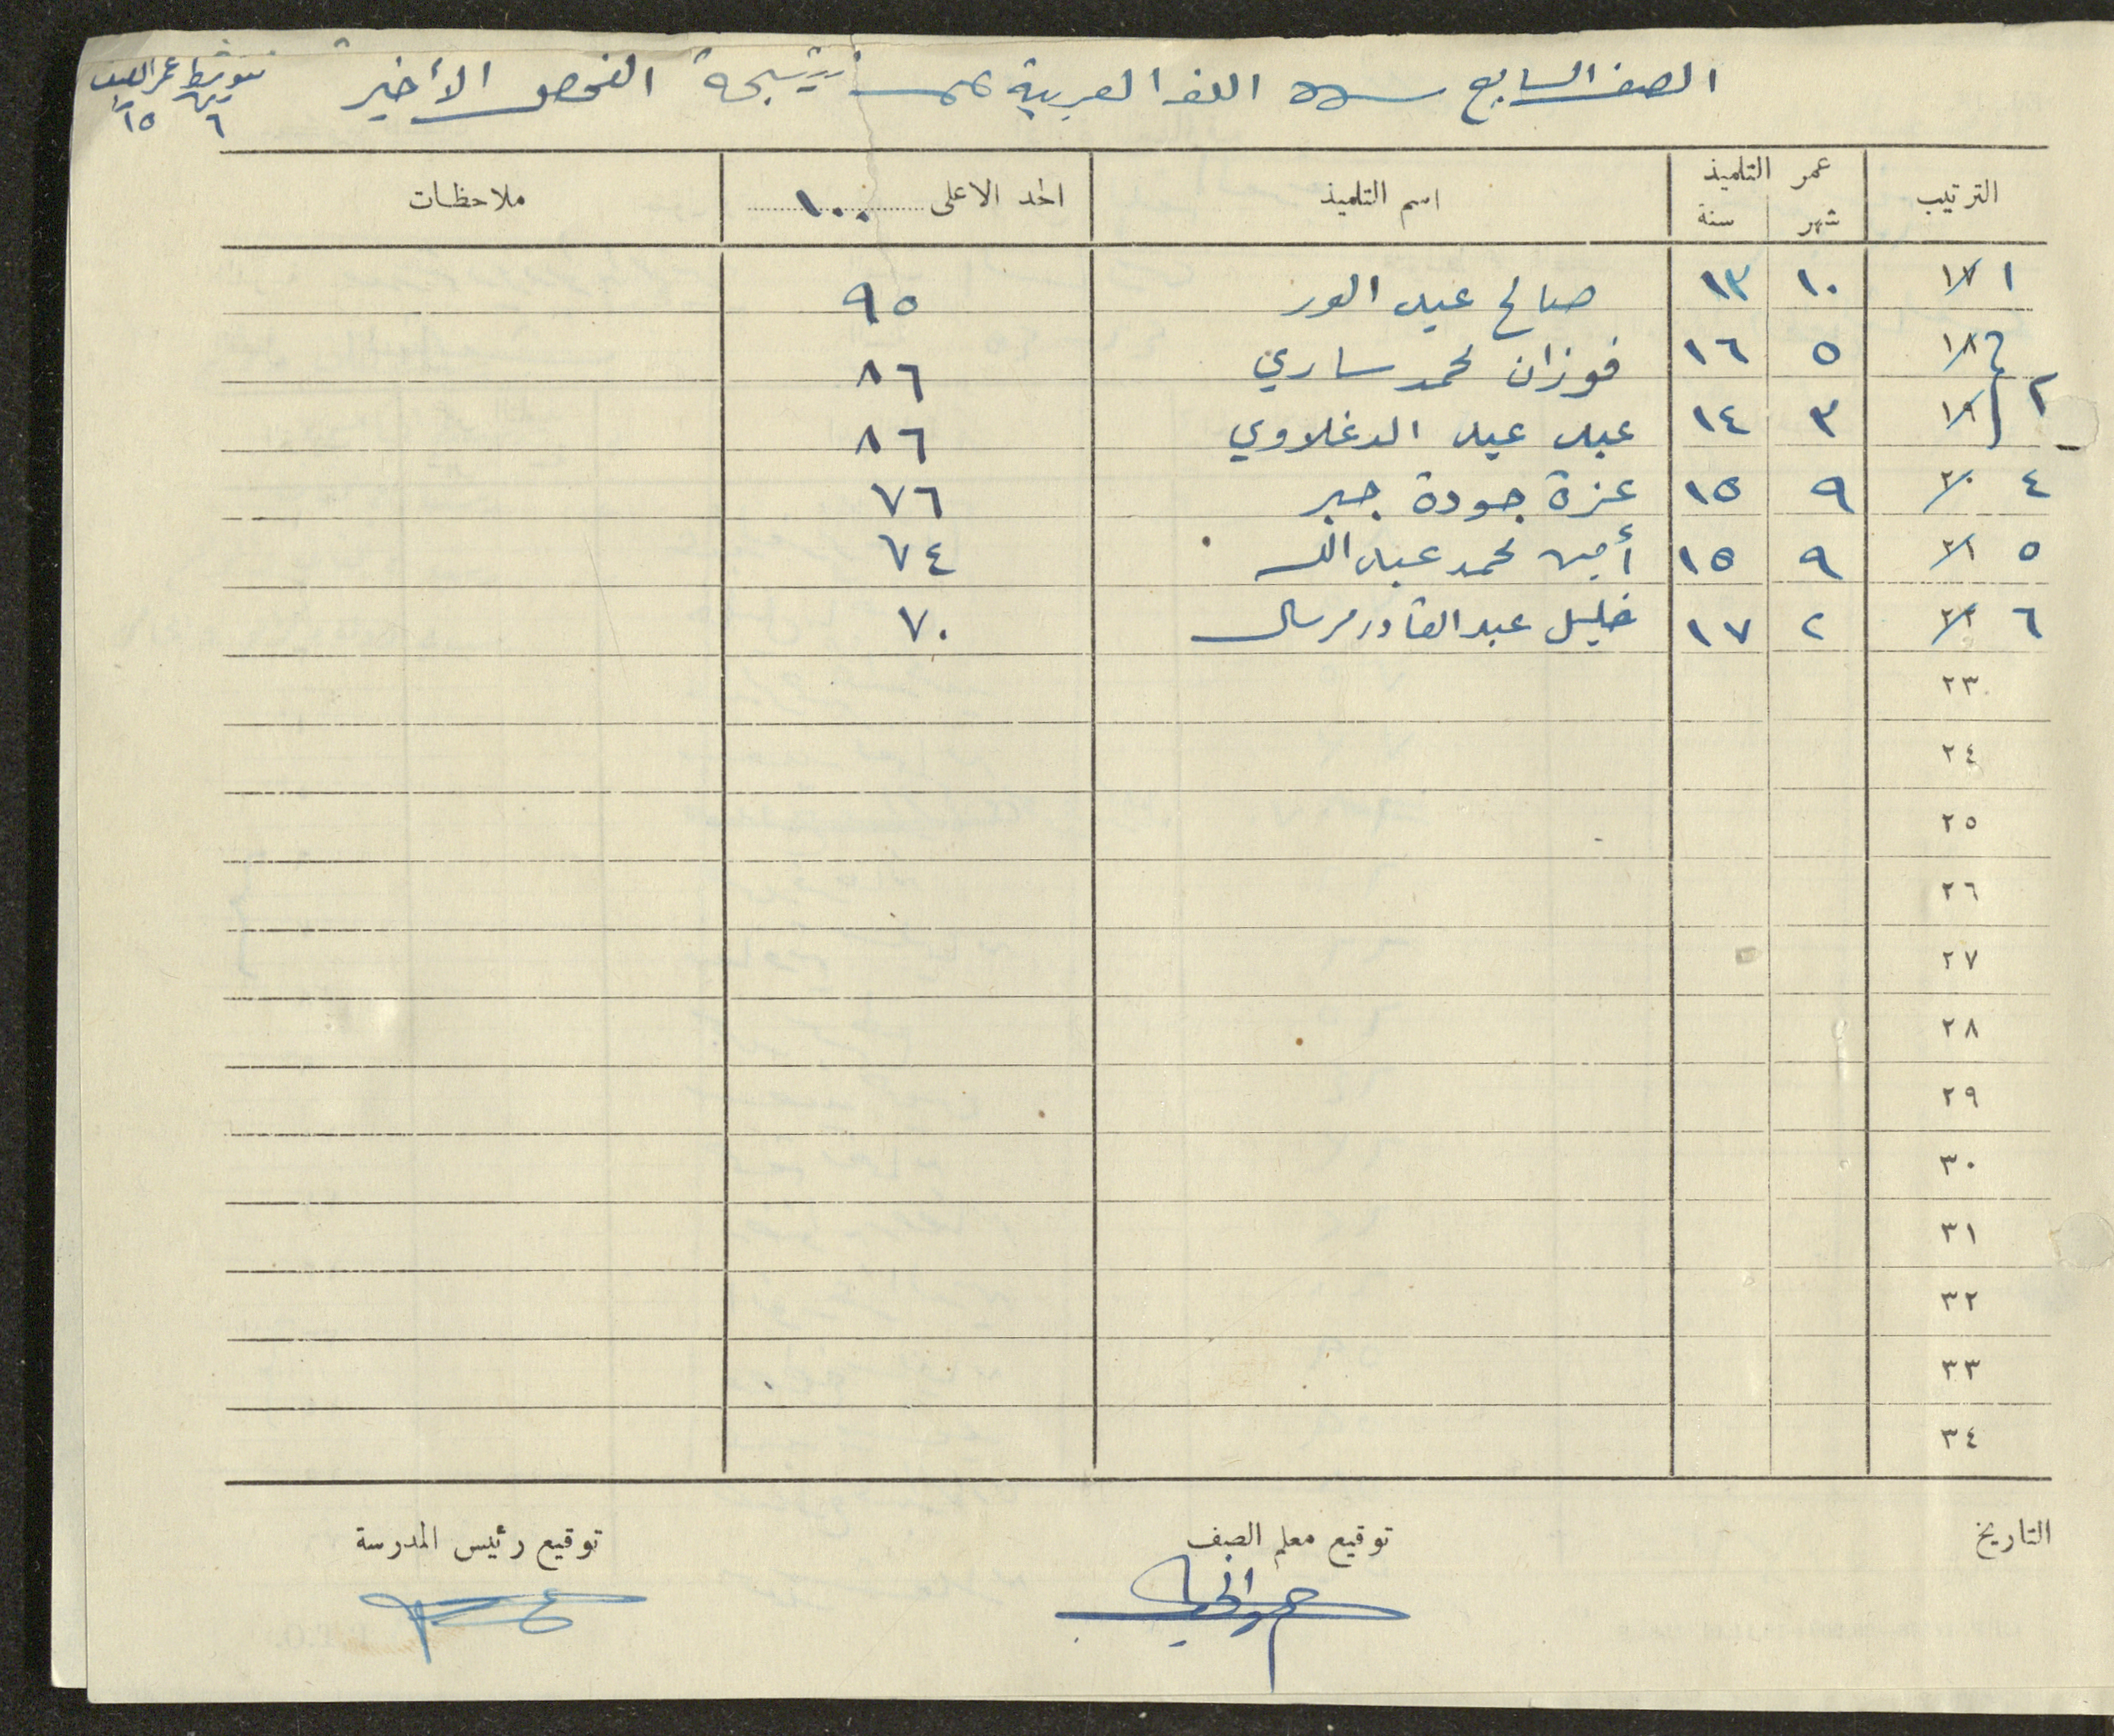 الصف السابع اللغة العربية نتيجة الفحص الأخير متوسط عمر الصف
٦ ١٥
الترتيب عمر التلميذ اسم التلميذ الحد الاعلى ١٠٠ ملاحظات
شهر سنة
١ ١٧ ١٠ ١٣ صالح عيد ٩٥
١٨ ٥ ١٦ فوزان محمد ساري ٨٦
٢
١٩ ٣ ١٤ عبد عيد الدغلاوي ٨٦
٤ ٢٠ ٩ ١٥ عزة جودة جبر ٧٦
٥ ٢١ ٩ ١٥ أمين محمد عبد الله ٧٤
٦ ٢٢ ٢ ١٧ خليل عبد القادر مرسال ٧٠
٢٣
٢٤
٢٥
٢٦
٢٧
٢٨
٢٩
٣٠
٣١
٣٢
٣٣
٣٤
التاريخ توقيع معلم الصف توقيع رئيس المدرسة